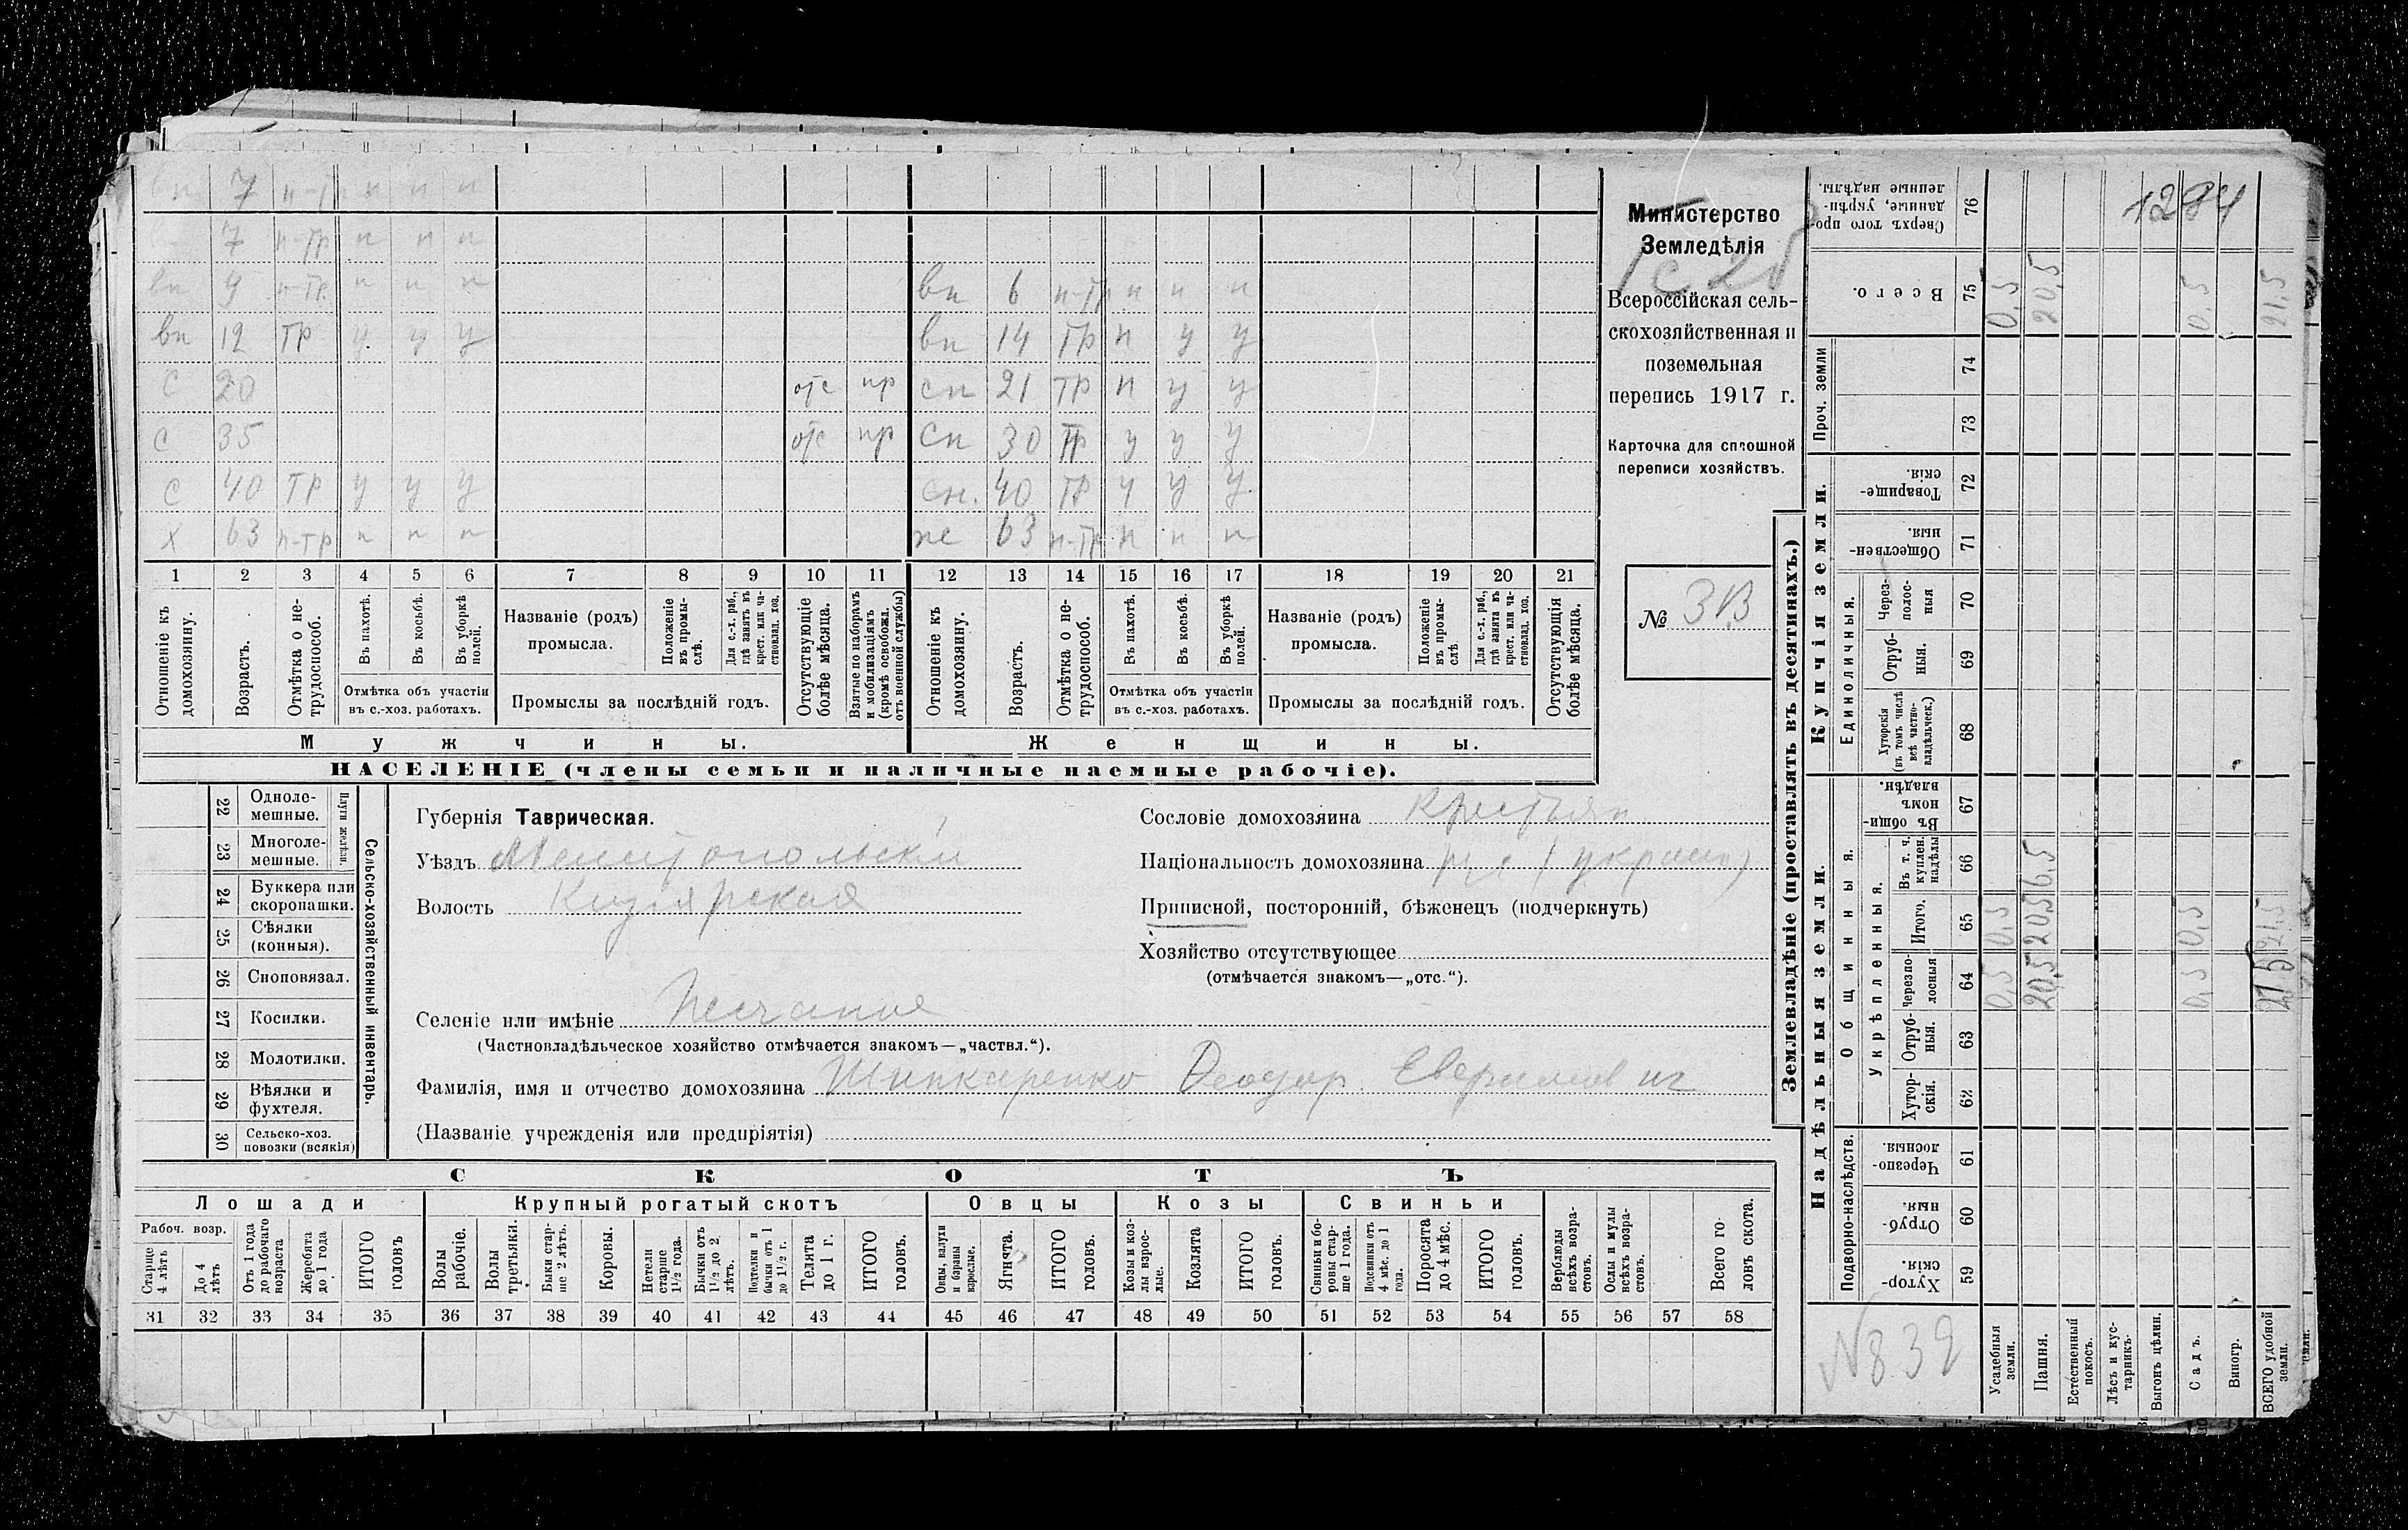 вн 7 н-т н н н
7 н-тр н н н
вн 9 н-тр н н н вн 6 н-тр н н н
вн 12 тр у у у вн 14 тр н у у
с 20 отс пр сн 21 тр н у у
с 35 отс пр сн 30 тр у у у
с 40 тр у у у сн. 40 тр у у у
х 63 н-тр н н н же 63 н-тр н н н
1 2 3 4 5 6 7 8 9 10 11 12 13 14 15 16 17 18 19 20 21
Отношеніе къ домохозяину.
Возрастъ.
Отмѣтка о не-трудоспособ.
Въ пахотѣ.
Въ косьбѣ.
Въ уборкѣ полей.
Отмѣтка объ участіи
въ с.-хоз. работахъ.
Названіе (родъ)
промысла.
Положеніе въ промы-слѣ.
Для с.-х. раб., гдѣ занятъ въ крест. или ча-стновлад. хоз.
Промыслы за послѣдній годъ.
Отсутствующіе болѣе мѣсяца.
Взятые по наборамъ и мобилизаціямъ (кромѣ освобожд. отъ военной службы)
Отношеніе къ домохозяину.
Возрастъ.
Отмѣтка о не-трудоспособ.
Въ пахотѣ.
Въ косьбѣ.
Въ уборкѣ полей.
Отмѣтка объ участіи
въ с.-хоз. работахъ.
Названіе (родъ)
промысла.
Положеніе въ промы-слѣ
Для с.-х. раб., гдѣ занята въ крест. или ча-стновлад. хоз.
Промыслы за послѣдній годъ.
Отсутствующія болѣе мѣсяца.
Мужчины. Женщины.
НАСЕЛЕНІЕ (члены семьи и наличные наемные рабочіе).
Министерство
Земледѣлія
Всероссійская сель-
скохозяйственная и
поземельная
перепись 1917 г.
Карточка для сплошной
переписи хозяйствъ.
№
22 Одноле-мешные.
23 Многоле-мешные.
Плуги желѣзн.
24 Буккера или скоропашки.
25 Сѣялки (конныя).
26 Сноповязал.
27 Косилки.
28 Молотилки.
29 Вѣялки и фухтеля.
30 Сельско-хоз. повозки (всякія)
Сельско-хозяйственный инвентарь.
Губернія Таврическая.
Уѣздъ Мелитопольскій
Волость Кизіярская
Селеніе или имѣніе Песчаное
(Частновладѣльческое хозяйство отмѣчается знакомъ—„частвл.“).
Фамилія, имя и отчество домохозяина Шинкаренко Феодор
(Названіе учрежденія или предпріятія)
Сословіе домохозяина крестьян
Національность домохозяина
Приписной, посторонній, бѣженецъ (подчеркнуть)
Хозяйство отсутствующее
(отмѣчается знакомъ—„отс.“).
СКОТЪ
Лошади Крупный рогатый скотъ Овцы Козы Свиньи
Рабоч. возр.
Старше 4 лѣтъ
До 4 лѣтъ
Отъ 1 года до рабочаго возраста
Жеребята до 1 года
ИТОГО головъ
Волы рабочіе.
Волы третьяки.
Быки стар-ше 2 лѣтъ.
Коровы.
Нетели старше 1½ года.
Бычки отъ 1½ до 2 лѣтъ.
Подтелки и бычки отъ 1 до 1½ г.
Телята до 1 г.
ИТОГО головъ.
Овцы, валухи и бараны взрослые.
Ягнята.
ИТОГО головъ.
Козы и коз-лы взрос-лые.
Козлята
ИТОГО головъ.
Свиньи и бо-ровы стар-ше 1 года.
Подсвинки отъ 4 мѣс. до 1 года.
Поросята до 4 мѣс.
ИТОГО головъ.
Верблюды всѣхъ возра-стовъ.
Ослы и мулы всѣхъ возра-стовъ.
Всего го-ловъ скота.
31 32 33 34 35 36 37 38 39 40 41 42 43 44 45 46 47 48 49 50 51 52 53 54 55 56 57 58
Землевладѣніе (проставлять въ десятинахъ.)
Купчія земли.
Надѣльныя земли.
1284
76 Сверхъ того про-данные, укрѣп-ленные надѣлы.
75 Всего. 0,5 20,5 0,5 21,5
Проч. земли
74
73
72 Товарище-скія.
71 Обществен-ныя.
Единоличныя.
70 Через-полос-ныя
69 Отруб-ныя.
68 Хуторскія (въ томъ числѣ всѣ частно-владѣльческ.)
Общинныя.
67 Въ общин-номъ владѣн.
Укрѣпленныя.
66 Въ т. ч. куплен. надѣлы
65 Итого. 0,5 20,5 0,5 21,5
64 Черезпо-лосныя 0,5 20,5 0,5 21,5
63 Отруб-ныя.
62 Хутор-скія.
Подворно-наслѣдств.
61 Черезпо-лосныя.
60 Отруб-ныя.
59 Хутор-скія.
N 839
Усадебныя земли.
Пашня.
Естественный покосъ.
Лѣсъ и кус-тарникъ.
Выгонъ цѣлин.
Садъ.
Виногр.
ВСЕГО удобной земли.